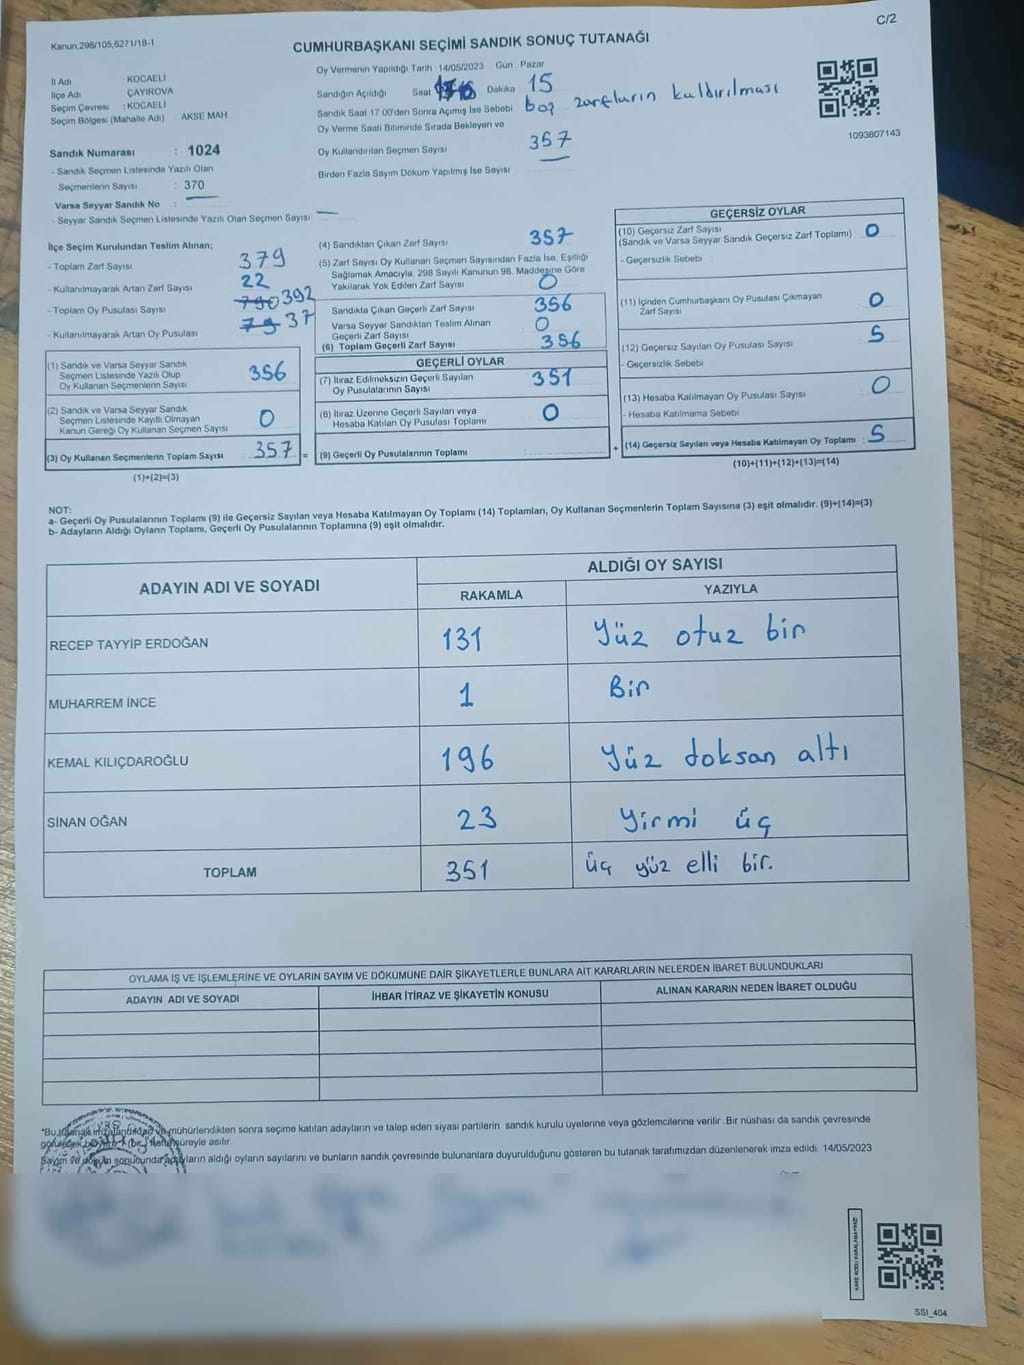 C/2
Kanun,298/105,6271/18-1
CUMHURBAŞKANI SEÇİMİ SANDIK SONUÇ TUTANAĞI
İl Adı : KOCAELİ
İlçe Adı : ÇAYIROVA
Seçim Çevresi : KOCAELİ
Seçim Bölgesi (Mahalle Adı) AKSE MAH
Sandık Numarası : 1024
- Sandık Seçmen Listesinde Yazılı Olan
Seçmenlerin Sayısı : 370
Varsa Seyyar Sandık No :
- Seyyar Sandık Seçmen Listesinde Yazılı Olan Seçmen Sayısı
Oy Vermenin Yapıldığı Tarih 14/05/2023 Gün Pazar
Sandığın Açıldığı Saat Dakika 15
Sandık Saat 17 00'den Sonra Açımış İse Sebebi boş zarfların kaldırılması
Oy Verme Saati Bitiminde Sırada Bekleyen ve
Oy Kullandırılan Seçmen Sayısı 357
Birden Fazla Sayım Döküm Yapılmış İse Sayısı
1093807143
İlçe Seçim Kurulundan Teslim Alınan;
- Toplam Zarf Sayısı 379
- Kullanılmayarak Artan Zarf Sayısı 22
- Toplam Oy Pusulası Sayısı 790 392
- Kullanılmayarak Artan Oy Pusulası 37
(1) Sandık ve Varsa Seyyar Sandık
Seçmen Listesinde Yazılı Olup
Oy Kullanan Seçmenlerin Sayısı 356
(2) Sandık ve Varsa Seyyar Sandık
Seçmen Listesinde Kayıtlı Olmayan
Kanun Gereği Oy Kullanan Seçmen Sayısı 0
(3) Oy Kullanan Seçmenlerin Toplam Sayısı 357 =
(1)+(2)=(3)
(4) Sandıktan Çıkan Zarf Sayısı 357
(5) Zarf Sayısı Oy Kullanan Seçmen Sayısından Fazla İse, Eşitliği
Sağlamak Amacıyla, 298 Sayılı Kanunun 98. Maddesine Göre
Yakılarak Yok Edilen Zarf Sayısı 0
Sandıkta Çıkan Geçerli Zarf Sayısı 356
Varsa Seyyar Sandıktan Teslim Alınan
Geçerli Zarf Sayısı 0
(6) Toplam Geçerli Zarf Sayısı 356
GEÇERLİ OYLAR
(7) İtiraz Edilmeksizin Geçerli Sayılan
Oy Pusulalarının Sayısı 351
(8) İtiraz Üzerine Geçerli Sayılan veya
Hesaba Katılan Oy Pusulası Toplamı 0
(9) Geçerli Oy Pusulalarının Toplamı : +
GEÇERSİZ OYLAR
(10) Geçersiz Zarf Sayısı
(Sandık ve Varsa Seyyar Sandık Geçersiz Zarf Toplamı) 0
- Geçersizlik Sebebi :
(11) İçinden Cumhurbaşkanı Oy Pusulası Çıkmayan
Zarf Sayısı 0
(12) Geçersiz Sayılan Oy Pusulası Sayısı : 5
- Geçersizlik Sebebi
(13) Hesaba Katılmayan Oy Pusulası Sayısı : 0
- Hesaba Katılmama Sebebi
(14) Geçersiz Sayılan veya Hesaba Katılmayan Oy Toplamı : 5
(10)+(11)+(12)+(13)=(14)
NOT:
a- Geçerli Oy Pusulalarının Toplamı (9) ile Geçersiz Sayılan veya Hesaba Katılmayan Oy Toplamı (14) Toplamları, Oy Kullanan Seçmenlerin Toplam Sayısına (3) eşit olmalıdır. (9)+(14)=(3)
b- Adayların Aldığı Oyların Toplamı, Geçerli Oy Pusulalarının Toplamına (9) eşit olmalıdır.
ADAYIN ADI VE SOYADI ALDIĞI OY SAYISI
RAKAMLA YAZIYLA
RECEP TAYYİP ERDOĞAN 131 Yüz otuz bir
MUHARREM İNCE 1 Bir
KEMAL KILIÇDAROĞLU 196 Yüz doksan altı
SİNAN OĞAN 23 Yirmi üç
TOPLAM 351 üç yüz elli bir.
OYLAMA İŞ VE İŞLEMLERİNE VE OYLARIN SAYIM VE DÖKÜMÜNE DAİR ŞİKAYETLERLE BUNLARA AİT KARARLARIN NELERDEN İBARET BULUNDUKLARI
ADAYIN ADI VE SOYADI İHBAR İTİRAZ VE ŞİKAYETİN KONUSU ALINAN KARARIN NEDEN İBARET OLDUĞU
"Bu tutanak imzalandıktan ve mühürlendikten sonra seçime katılan adayların ve talep eden siyasi partilerin sandık kurulu üyelerine veya gözlemcilerine verilir. Bir nüshası da sandık çevresinde
görülecek bir yere 1 (bir) hafta süreyle asılır.
Sayım ve döküm sonucunda adayların aldığı oyların sayılarını ve bunların sandık çevresinde bulunanlara duyurulduğunu gösteren bu tutanak tarafımızdan düzenlenerek imza edildi. 14/05/2023
KARE KODU KARALAMAYINIZ!
SSI_404